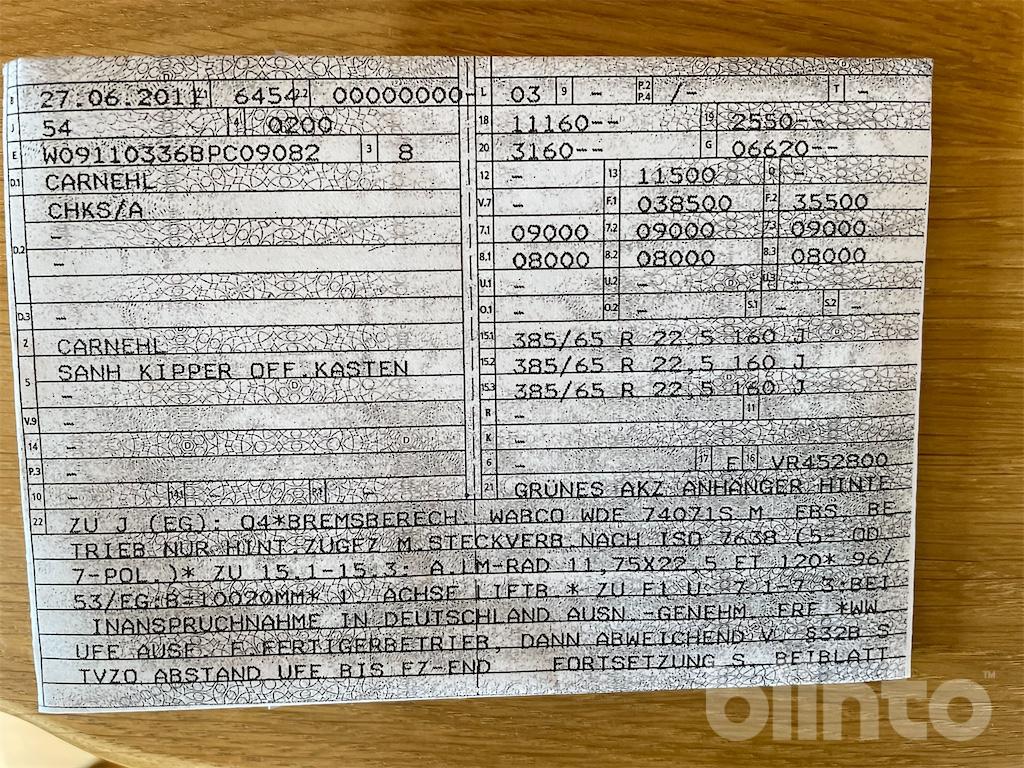 B 27.06.2011 2.1 6454 2.2 00000000-
J 54 4 0200
E W09110336BPC09082 3 8
D.1 CARNEHL
CHKS/A
D.2 —
—
D.3 —
2 CARNEHL
5 SANH KIPPER OFF.KASTEN
—
V.9 —
14 —
P.3 —
10 — 14.1 — P.1 —
L 03 9 — P.2 P.4 /— T —
18 11160-- 19 2550--
20 3160-- G 06620--
12 — 13 11500 Q —
V.7 — F.1 038500 F.2 35500
7.1 09000 7.2 09000 7.3 09000
8.1 08000 8.2 08000 8.3 08000
U.1 — U.2 — U.3 —
O.1 — O.2 — S.1 — S.2 —
15.1 385/65 R 22,5 160 J
15.2 385/65 R 22,5 160 J
15.3 385/65 R 22,5 160 J
R — 11
K —
6 — 17 E 16 VR452800
21 GRÜNES AKZ ANHÄNGER HINTE
22 ZU J (EG): O4*BREMSBERECH. WABCO WDF 74071S M. EBS. BE
TRIEB NUR HINT.ZUGFZ M.STECKVERB.NACH ISO 7638 (5- OD.
7-POL.)* ZU 15.1-15.3: A.LM-RAD 11,75X22,5 ET 120* 96/
53/EG:B=10020MM* 1. ACHSE LIFTB.* ZU F1 U. 7.1-7.3:BEI
INANSPRUCHNAHME IN DEUTSCHLAND AUSN.-GENEHM. ERF.*WW.
UFE AUSF. F.FERTIGERBETRIEB, DANN ABWEICHEND V. §32B S
TVZO ABSTAND UFE BIS FZ-END FORTSETZUNG S. BEIBLATT
blinto™